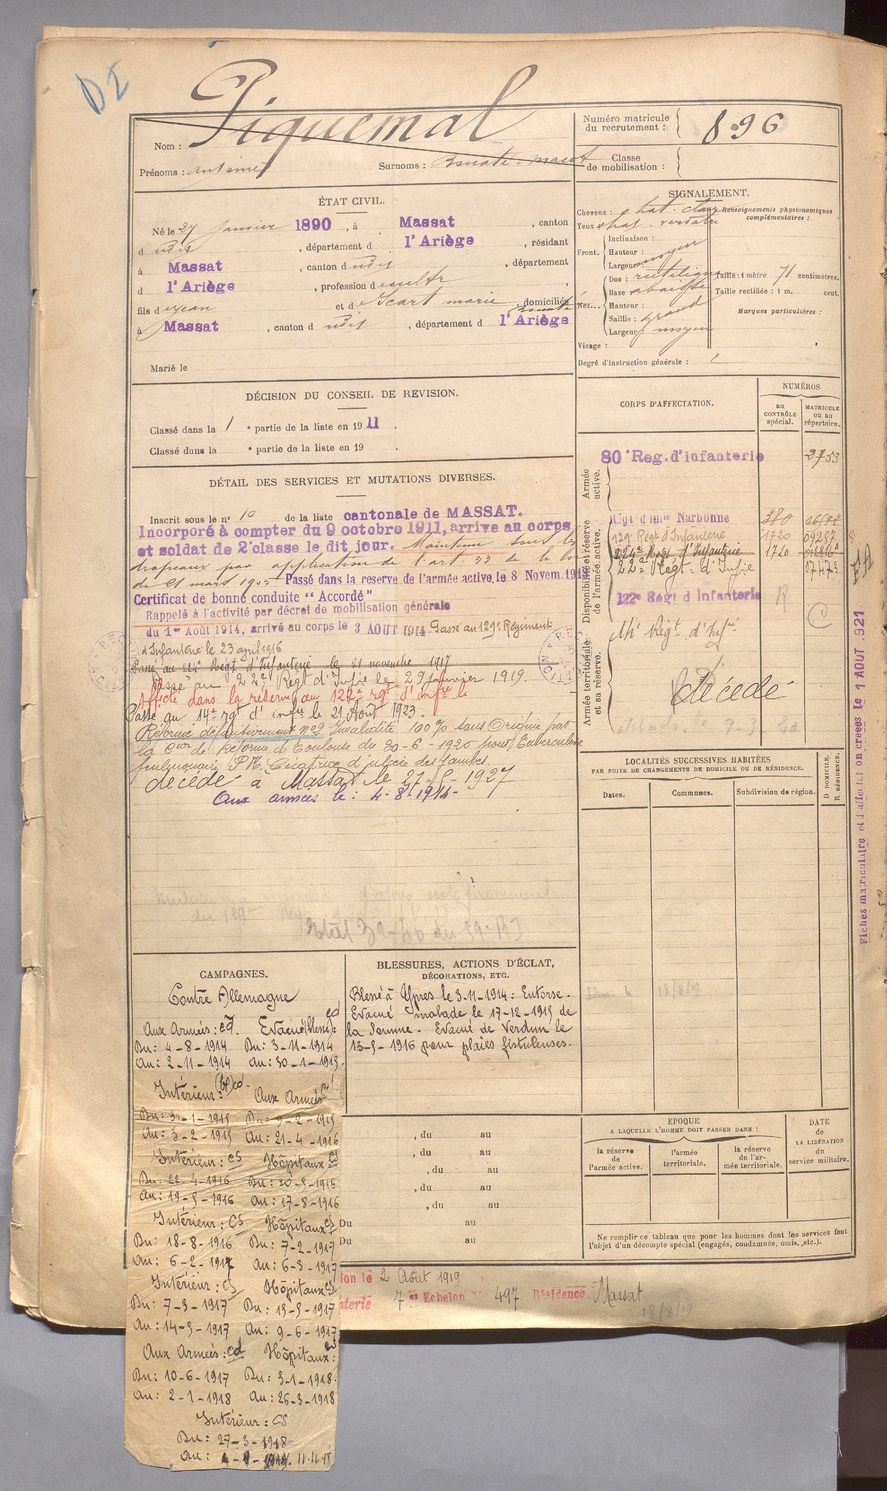 DI
Nom : Piquemal
Prénoms : antoine
Surnoms :
Numéro matricule du recrutement : 896
Classe de mobilisation :
ÉTAT CIVIL.
Né le 27 Janvier 1890, à Massat, canton
d udit, département d l'Ariège, résidant
à Massat, canton d udit, département
d l'Ariège, profession d cultr
fils d e Jean et d e Icart marie, domiciliés
à Massat, canton d udit, département d l'Ariège
Marié le
SIGNALEMENT.
Cheveux : chat. clair
Yeux chat. verdâtre
Front.
Inclinaison :
Hauteur :
Largeur moyen
Nez.
Dos : rectiligne
Base abaissée
Hauteur :
Saillie : grand
Largeur : moyen
Visage :
Renseignements physionomiques complémentaires :
Taille : 1 mètre 71 centimètres.
Taille rectifiée : 1 m. cent.
Marques particulières :
Degré d'instruction générale :
DÉCISION DU CONSEIL DE REVISION.
Classé dans la 1 e partie de la liste en 1911.
Classé dans la e partie de la liste en 19 .
DÉTAIL DES SERVICES ET MUTATIONS DIVERSES.
Inscrit sous le n° 10 de la liste cantonale de MASSAT.
Incorporé à compter du 9 octobre 1911, arrive au corps
et soldat de 2e classe le dit jour. Maintenu sous les
drapeaux par application de l'art 33 de la loi
du 21 mars 1905 Passé dans la reserve de l'armée active, le 8 Novem. 191
Certificat de bonne conduite " Accordé "
Rappelé à l'activité par décret de mobilisation générale
du 1er Août 1914, arrivé au corps le 3 AOUT 1914. Passé au 129e Régiment
d'Infanterie le 23 avril 1916
Passé au 224e Regt d'Infanterie le 21 novembre 1917
Passé au 22e Regt d'Infie le 29 janvier 1919.
Affecté dans la réserve au 122e rgt d'infie le
Passé au 14e rgt d'infie le 21 Août 1923.
Réformé définitivement n°2 Invalidité 100% sans Origine par
la Con de Réforme de Toulouse du 30-6-1920 pour Tuberculose
pulmonaire P.M. Cicatrice d'ulcère des jambes.
décédé à Massat le 27-5-1927
Aux armées le : 4-8-1914-
CORPS D'AFFECTATION.
NUMÉROS
au CONTRÔLE spécial.
MATRICULE ou au répertoire.
Armée active.
80e Reg. d'infanterie 2753
Disponibilité et réserve de l'armée active.
Regt d'Infie Narbonne 380
129e Regt d'Infanterie 1720 09257
224e Regt d'Infanterie 1720
22e Regt. d'Infie
122e Regt d'Infanterie R
Armée territoriale et sa réserve.
14e Regt d'Infie. C
décédé
Fiches matriculaire et d'affectation créées le 1 AOUT 1921
LOCALITÉS SUCCESSIVES HABITÉES
PAR SUITE DE CHANGEMENTS DE DOMICILE OU DE RÉSIDENCE.
Dates.
Communes.
Subdivision de région.
D DOMICILE. R RÉSIDENCE.
CAMPAGNES.
Contre Allemagne
Aux Armées : cd. Evacué (Blessé) : cd
Du : 4-8-1914 Du : 3-11-1914
Au : 2-11-1914 Au : 30-1-1915.
Intérieur : Aux Armées
Du : 3-1-1915 Du : 9-2-1915
Au : 3-2-1915 Au : 21-4-1916
Intérieur : CS Hôpitaux CS
Du : 22-4-1916 Du : 20-5-1916
Au : 19-5-1916 Au : 17-8-1916
Intérieur : CS Hôpitaux CS
Du : 18-8-1916 Du : 7-2-1917
Au : 6-2-1917 Au : 6-3-1917
Intérieur : CS Hôpitaux CS
Du : 7-3-1917 Du : 15-5-1917
Au : 14-5-1917 Au : 9-6-1917
Aux Armées : cd Hôpitaux : CS
Du : 10-6-1917 Du : 3-1-1918.
Au : 2-1-1918 Au : 26-3-1918
Intérieur : CS
Du : 27-3-1918
BLESSURES, ACTIONS D'ÉCLAT,
DÉCORATIONS, ETC.
Blessé à Ypres le 3-11-1914 : Entorse.
Evacué malade le 17-12-1915 de
la Somme. Evacué de Verdun le
13-5-1916 pour plaies fistuleuses.
, du au
, du au
, du au
, du au
, du au
Du au
Du au
EPOQUE
A LAQUELLE L'HOMME DOIT PASSER DANS :
la réserve de l'armée active.
l'armée territoriale.
la réserve de l'armée territoriale.
DATE de LA LIBÉRATION du service militaire.
Ne remplir ce tableau que pour les hommes dont les services font
l'objet d'un décompte spécial (engagés, condamnés, omis, etc.).
lon le 2 Août 1919
7e Echelon 497 Résidence Massat